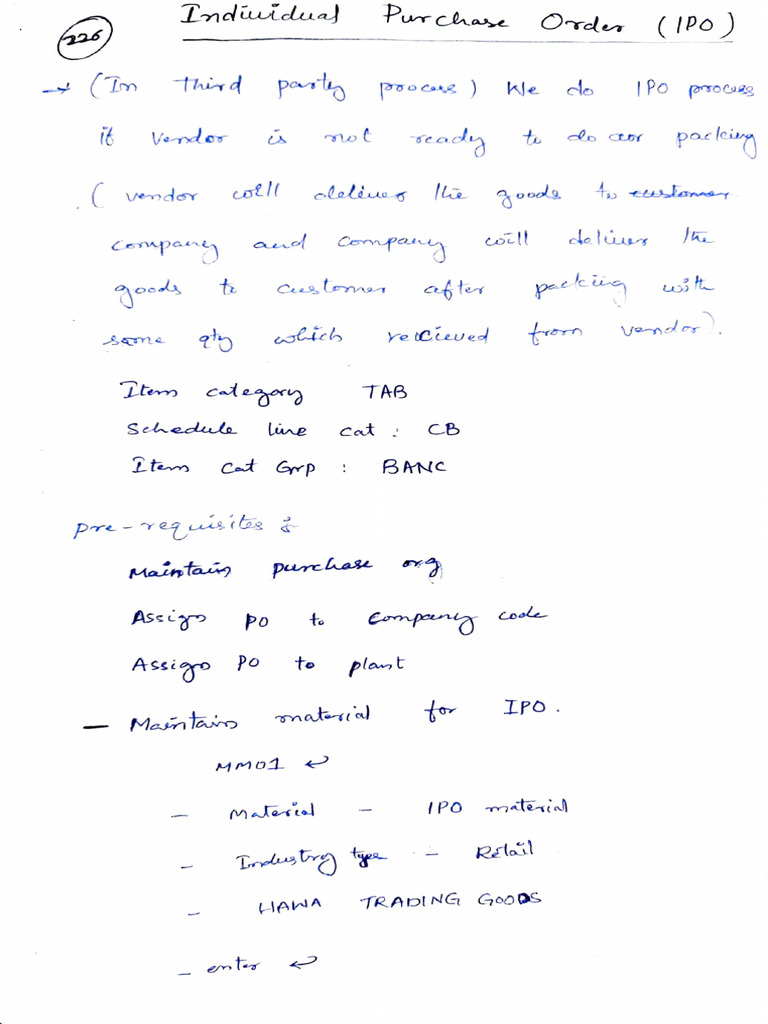 226
Individual Purchase Order (IPO)
→ (In third party process) We do IPO process
if vendor is not ready to do our packing
( vendor will deliver the goods to customer
company and company will deliver the
goods to customer after packing with
some qty which recieved from vendor).
Item category TAB
Schedule line cat : CB
Item Cat Grp : BANC
Pre-requisites :
Maintain purchase org
Assign PO to company code
Assign PO to plant
— Maintain material for IPO.
MM01 ↵
– Material – IPO material
– Industry type – Retail
– HAWA TRADING GOODS
– enter ↵